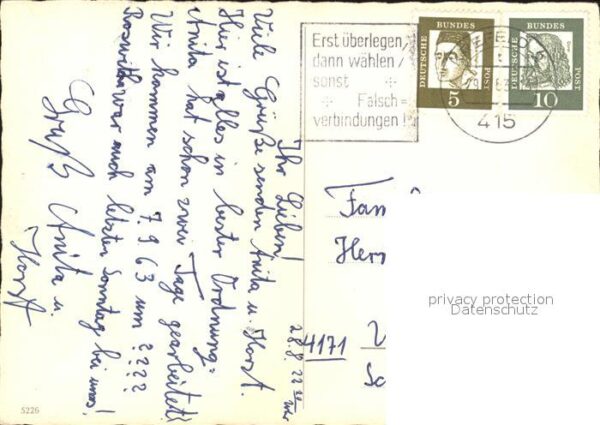 Ihr Lieben!
Viele Grüße senden Anita u. Horst.
Hier ist alles in bester Ordnung.
Anita hat schon zwei Tage gearbeitet!
Wir kommen am 7.9.63 um ????
Roswitha war auch letzten Sonntag bei uns!
Gruß Anita u.
Horst
28.8. 22 Uhr
Erst überlegen,
dann wählen,
sonst
Falsch=
verbindungen!
DEUTSCHE BUNDES POST
5
DEUTSCHE BUNDES POST
10
415
Fam
Herr
4171
privacy protection
Datenschutz
5226